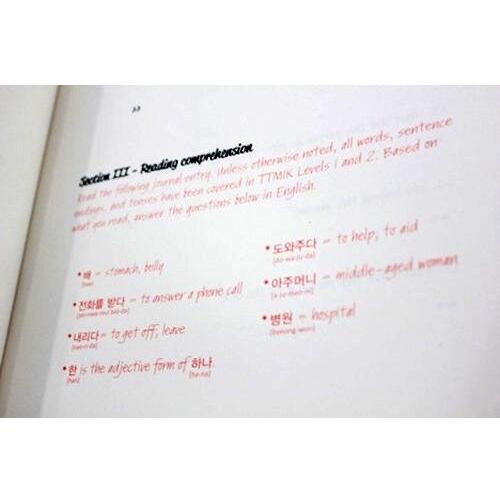 Section III - Reading comprehension
Read the following journal entry. Unless otherwise noted, all words, sentence
endings, and tenses have been covered in TTMIK Levels 1 and 2. Based on
what you read, answer the questions below in English.
• 배 - stomach, belly
[bae]
• 전화를 받다 - to answer a phone call
• 내리다 - to get off, leave
[nae-ri-da]
• 한 is the adjective form of 하나.
[han] [ha-na]
• 도와주다 - to help, to aid
[do-wa-ju-da]
• 아주머니 - middle-aged woman
[a-ju-meo-ni]
• 병원 - hospital
[byeong-won]